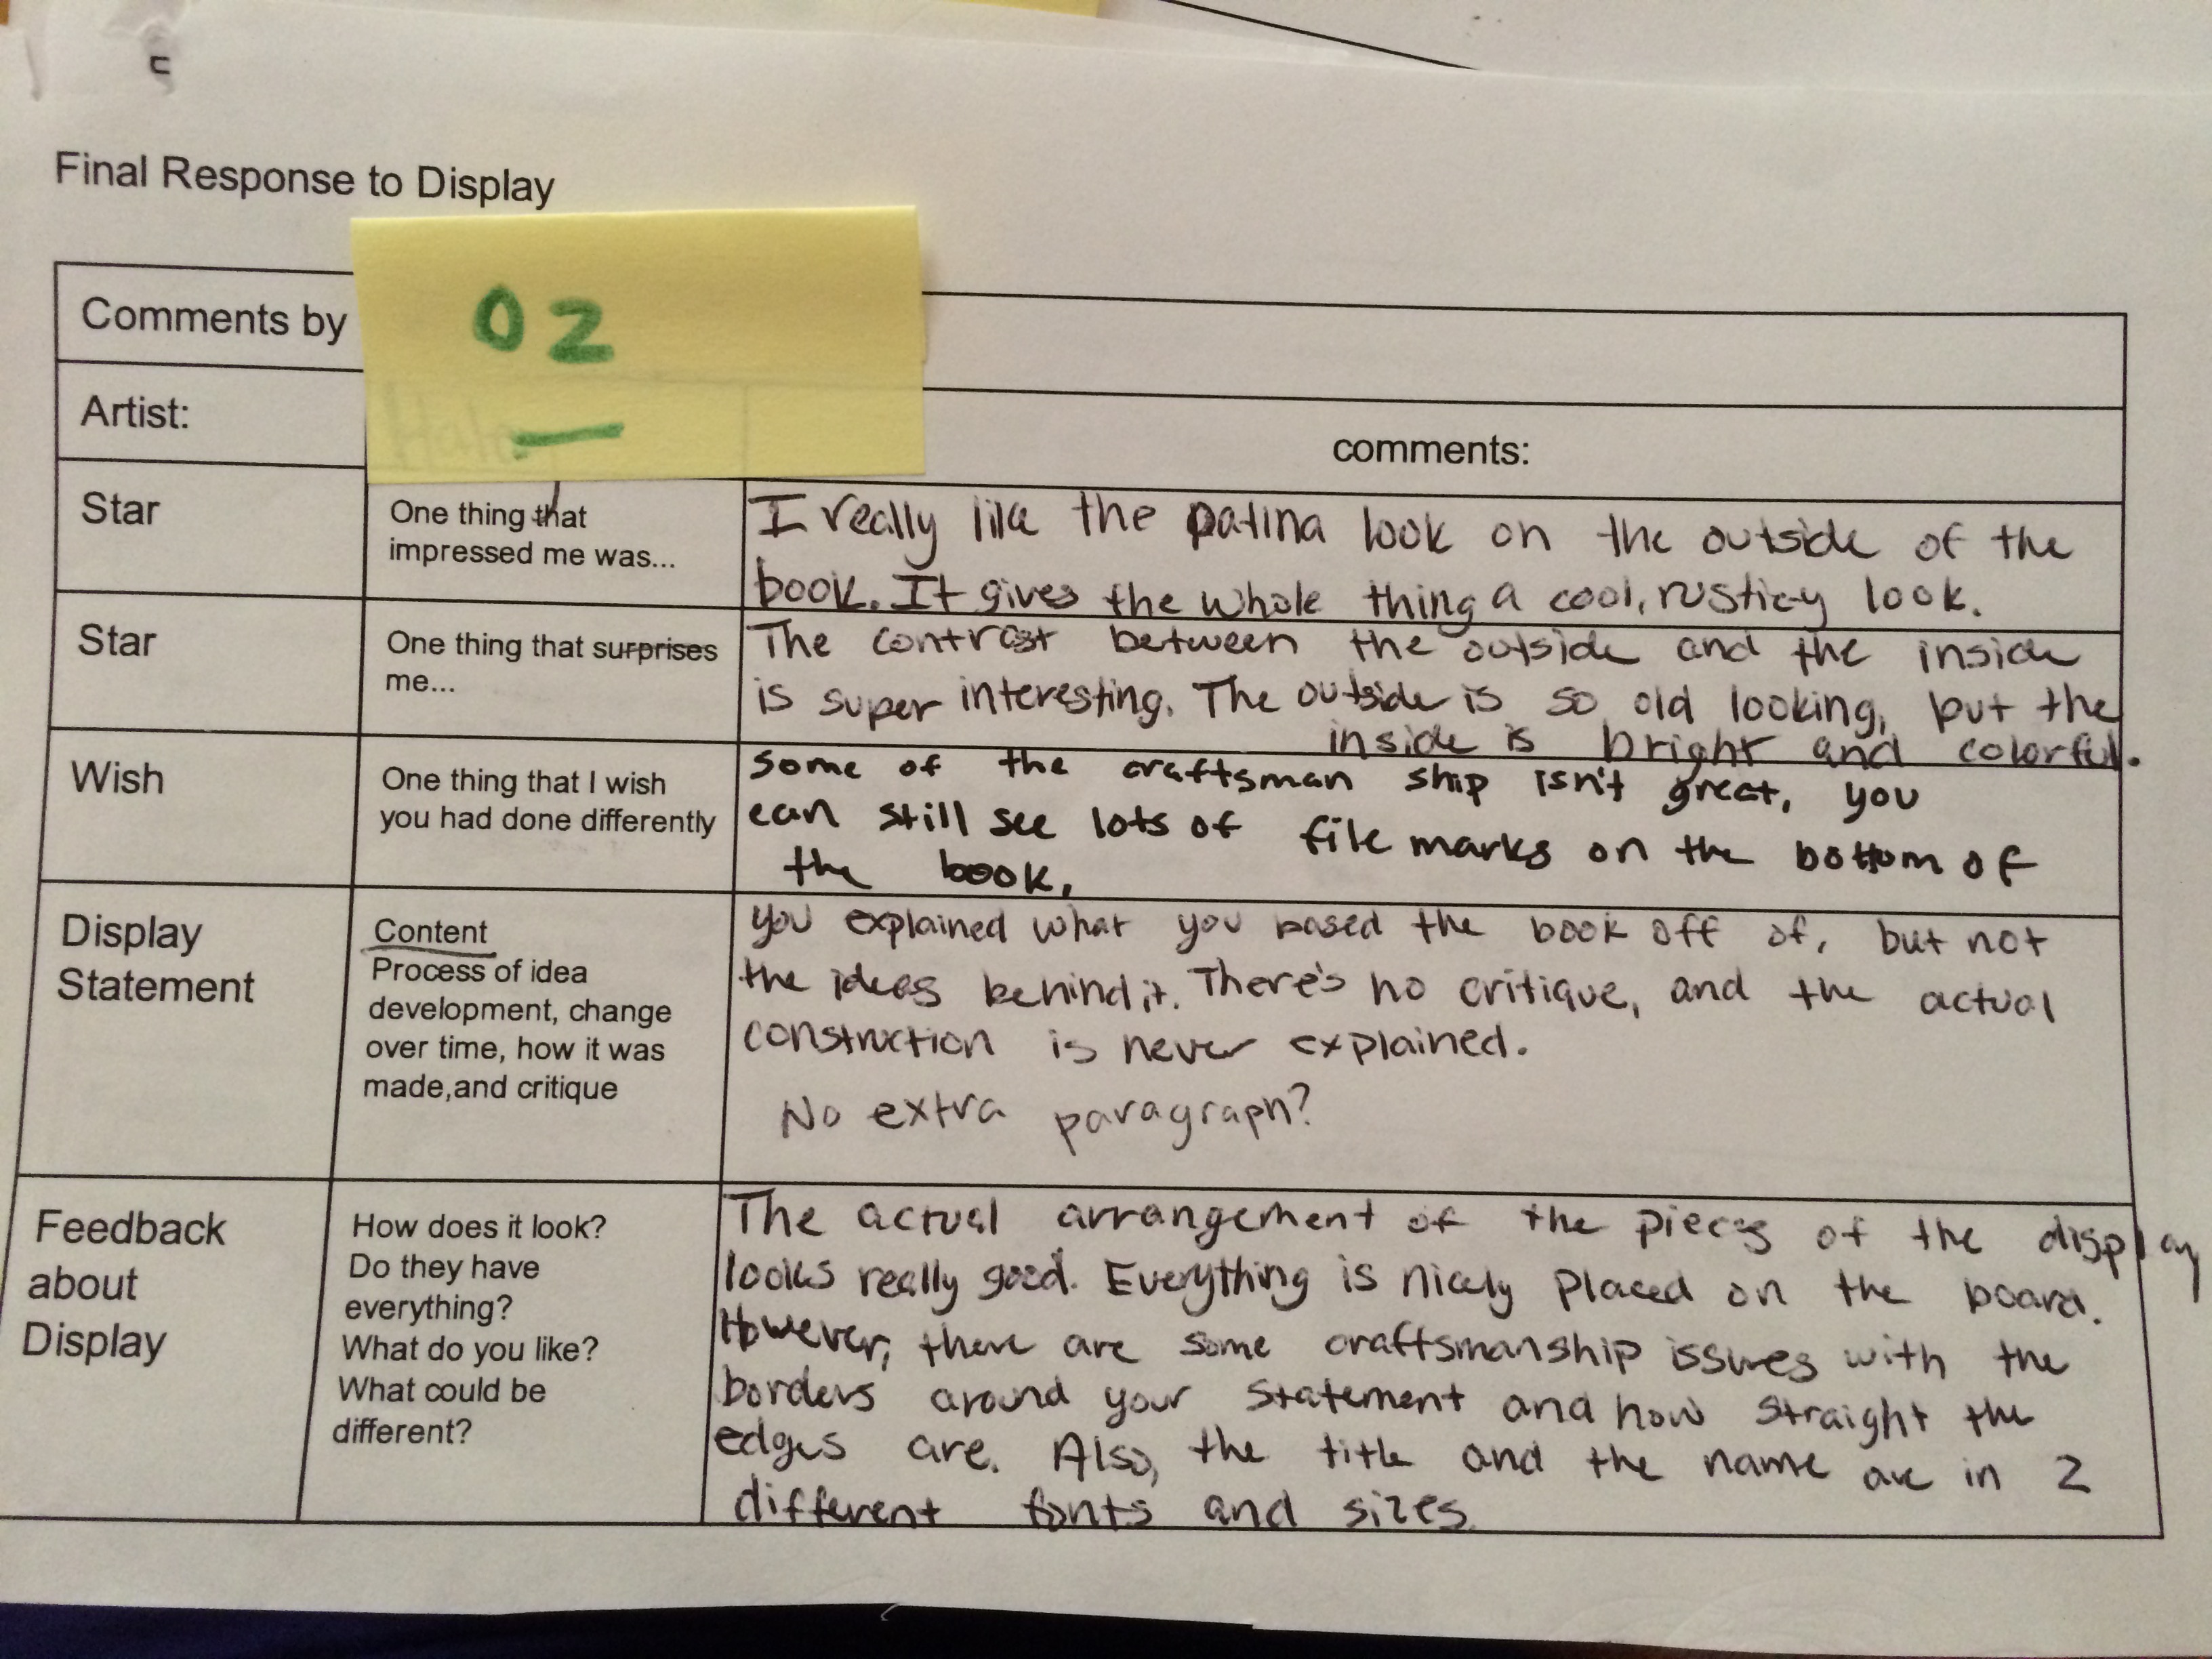 Final Response to Display
02
Comments by
Artist:
comments:
Star
One thing that
impressed me was...
I really like the patina look on the outside of the
book. It gives the whole thing a cool, rusticy look.
Star
One thing that surprises
me...
The contrast between the outside and the inside
is super interesting. The outside is so old looking, but the
inside is bright and colorful.
Wish
One thing that I wish
you had done differently
Some of the craftsman ship isn't great, you
can still see lots of file marks on the bottom of
the book,
Display
Statement
Content
Process of idea
development, change
over time, how it was
made,and critique
you explained what you based the book off of, but not
the ideas behind it. There's no critique, and the actual
construction is never explained.
No extra paragraph?
Feedback
about
Display
How does it look?
Do they have
everything?
What do you like?
What could be
different?
The actual arrangement of the pieces of the display
looks really good. Everything is nicely placed on the board.
However, there are some craftsmanship issues with the
borders around your statement and how straight the
edges are. Also, the title and the name are in 2
different fonts and sizes.